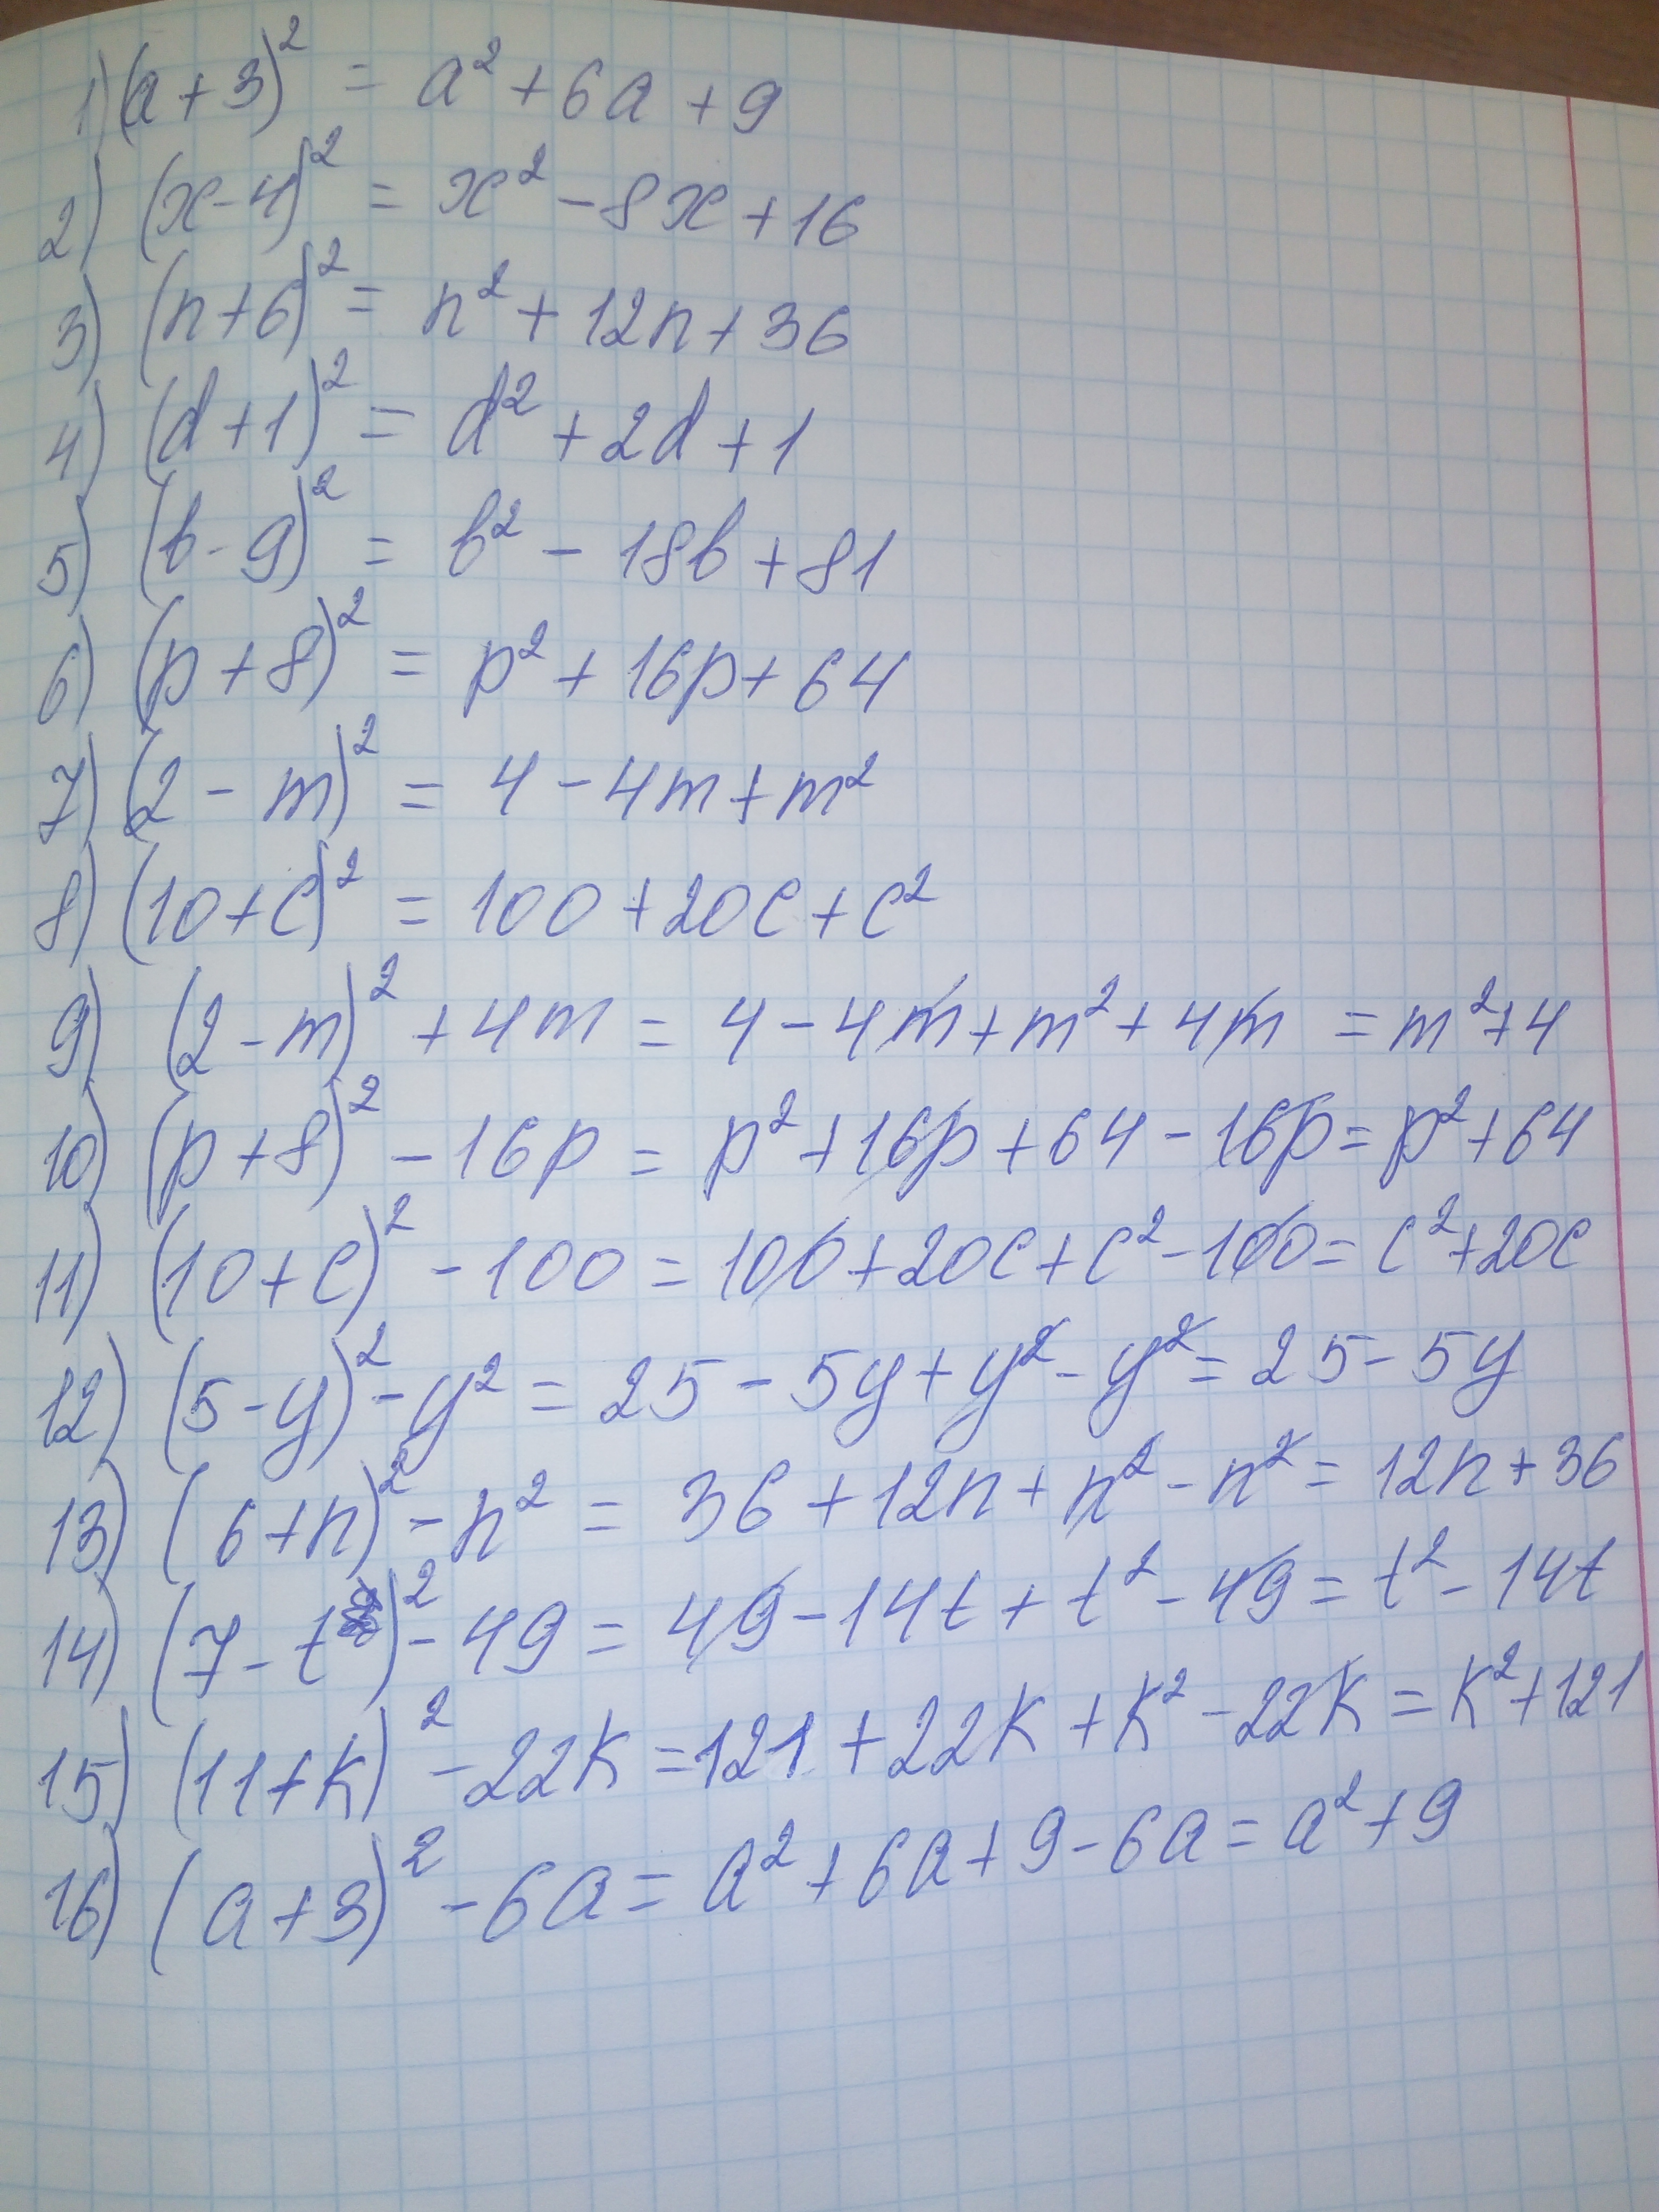 1) (a+3)² = a² + 6a + 9
2) (x-4)² = x² - 8x + 16
3) (n+6)² = n² + 12n + 36
4) (d+1)² = d² + 2d + 1
5) (b-9)² = b² - 18b + 81
6) (p+8)² = p² + 16p + 64
7) (2-m)² = 4 - 4m + m²
8) (10+c)² = 100 + 20c + c²
9) (2-m)² + 4m = 4 - 4m + m² + 4m = m² + 4
10) (p+8)² - 16p = p² + 16p + 64 - 16p = p² + 64
11) (10+c)² - 100 = 100 + 20c + c² - 100 = c² + 20c
12) (5-y)² - y² = 25 - 5y + y² - y² = 25 - 5y
13) (6+n)² - n² = 36 + 12n + n² - n² = 12n + 36
14) (7-t)² - 49 = 49 - 14t + t² - 49 = t² - 14t
15) (11+k)² - 22k = 121 + 22k + k² - 22k = k² + 121
16) (a+3)² - 6a = a² + 6a + 9 - 6a = a² + 9